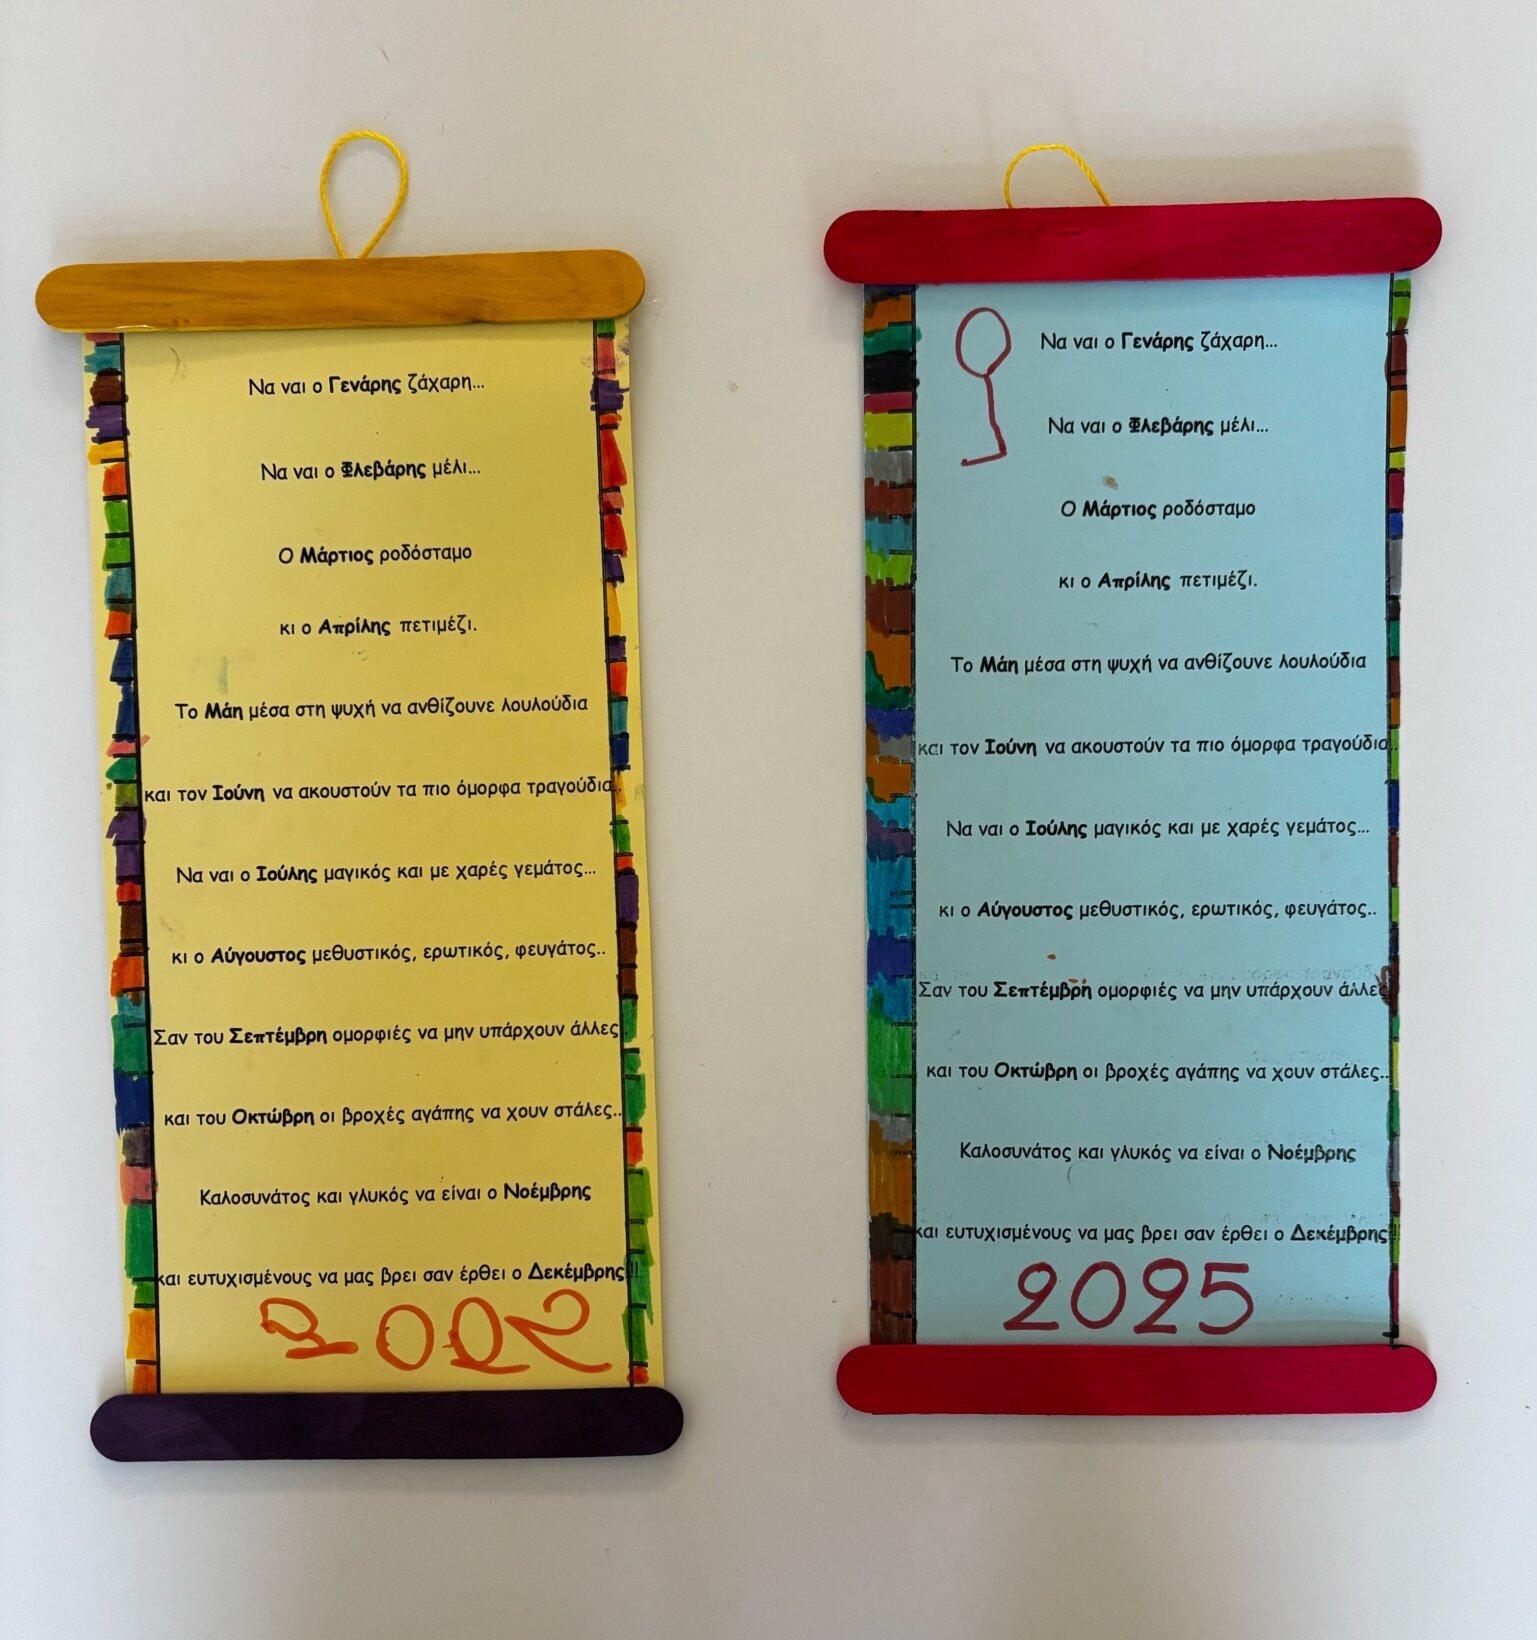 Να ναι ο Γενάρης ζάχαρη...
Να ναι ο Φλεβάρης μέλι...
Ο Μάρτιος ροδόσταμο
κι ο Απρίλης πετιμέζι.
Το Μάη μέσα στη ψυχή να ανθίζουνε λουλούδια
και τον Ιούνη να ακουστούν τα πιο όμορφα τραγούδια..
Να ναι ο Ιούλης μαγικός και με χαρές γεμάτος...
κι ο Αύγουστος μεθυστικός, ερωτικός, φευγάτος..
Σαν του Σεπτέμβρη ομορφιές να μην υπάρχουν άλλες
και του Οκτώβρη οι βροχές αγάπης να χουν στάλες..
Καλοσυνάτος και γλυκός να είναι ο Νοέμβρης
και ευτυχισμένους να μας βρει σαν έρθει ο Δεκέμβρης!!
Να ναι ο Γενάρης ζάχαρη...
Να ναι ο Φλεβάρης μέλι...
Ο Μάρτιος ροδόσταμο
κι ο Απρίλης πετιμέζι.
Το Μάη μέσα στη ψυχή να ανθίζουνε λουλούδια
και τον Ιούνη να ακουστούν τα πιο όμορφα τραγούδια..
Να ναι ο Ιούλης μαγικός και με χαρές γεμάτος...
κι ο Αύγουστος μεθυστικός, ερωτικός, φευγάτος..
Σαν του Σεπτέμβρη ομορφιές να μην υπάρχουν άλλες
και του Οκτώβρη οι βροχές αγάπης να χουν στάλες..
Καλοσυνάτος και γλυκός να είναι ο Νοέμβρης
και ευτυχισμένους να μας βρει σαν έρθει ο Δεκέμβρης!!
2025